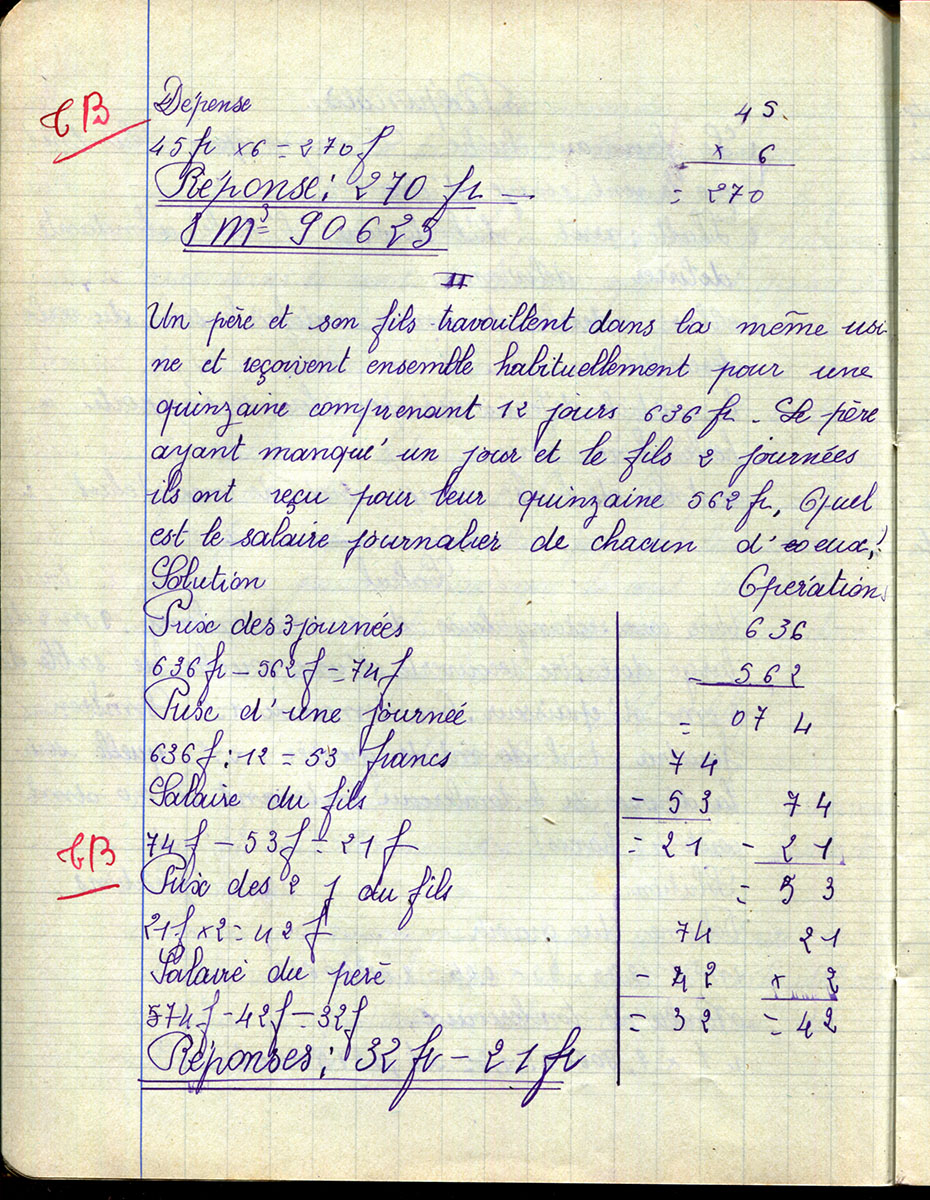 TB
Dépense
45 fr x6 = 270 f
Réponse : 270 fr
1 m³ = 90623
45.
x 6
= 270
II
Un père et son fils travaillent dans la même usi-
ne et reçoivent ensemble habituellement pour une
quinzaine comprenant 12 jours 636 fr. Le père
ayant manqué un jour et le fils 2 journées
ils ont reçu pour leur quinzaine 562 fr, Quel
est le salaire journalier de chacun d'eux?
Solution
Opérations
Prix des 3 journées
636 fr - 562 f = 74 f
Prix d'une journée
636 f : 12 = 53 francs
Salaire du fils
74 f - 53 f = 21 f
TB
Prix des 2 j du fils
21 f x2 = 42 f
Salaire du père
74 f - 42 f = 32 f
Réponses : 32 fr - 21 fr
636
- 562
= 074
74
- 53
= 21
74
- 21
= 53
74
- 42
= 32
21
x 2
= 42